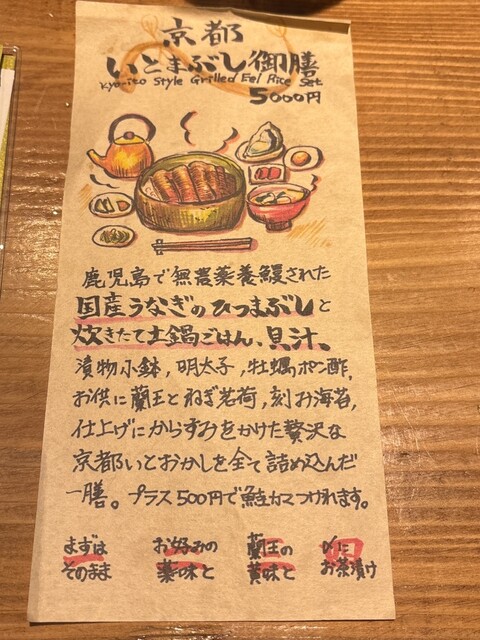 京都
いとまぶし御膳
Kyo-ito Style Grilled Eel Rice Set
5000円
鹿児島で無農薬養鰻された
国産うなぎのひつまぶしと
炊きたて土鍋ごはん、貝汁、
漬物小鉢，明太子，牡蠣ポン酢，
お供に蘭王とねぎ茗荷，刻み海苔，
仕上げにからすみをかけた贅沢な
京都いとおかしを全て詰め込んだ
一膳。プラス500円で鮭カマつけれます。
まずは お好みの 蘭王の 〆に
そのまま 薬味と 黄味と お茶漬け